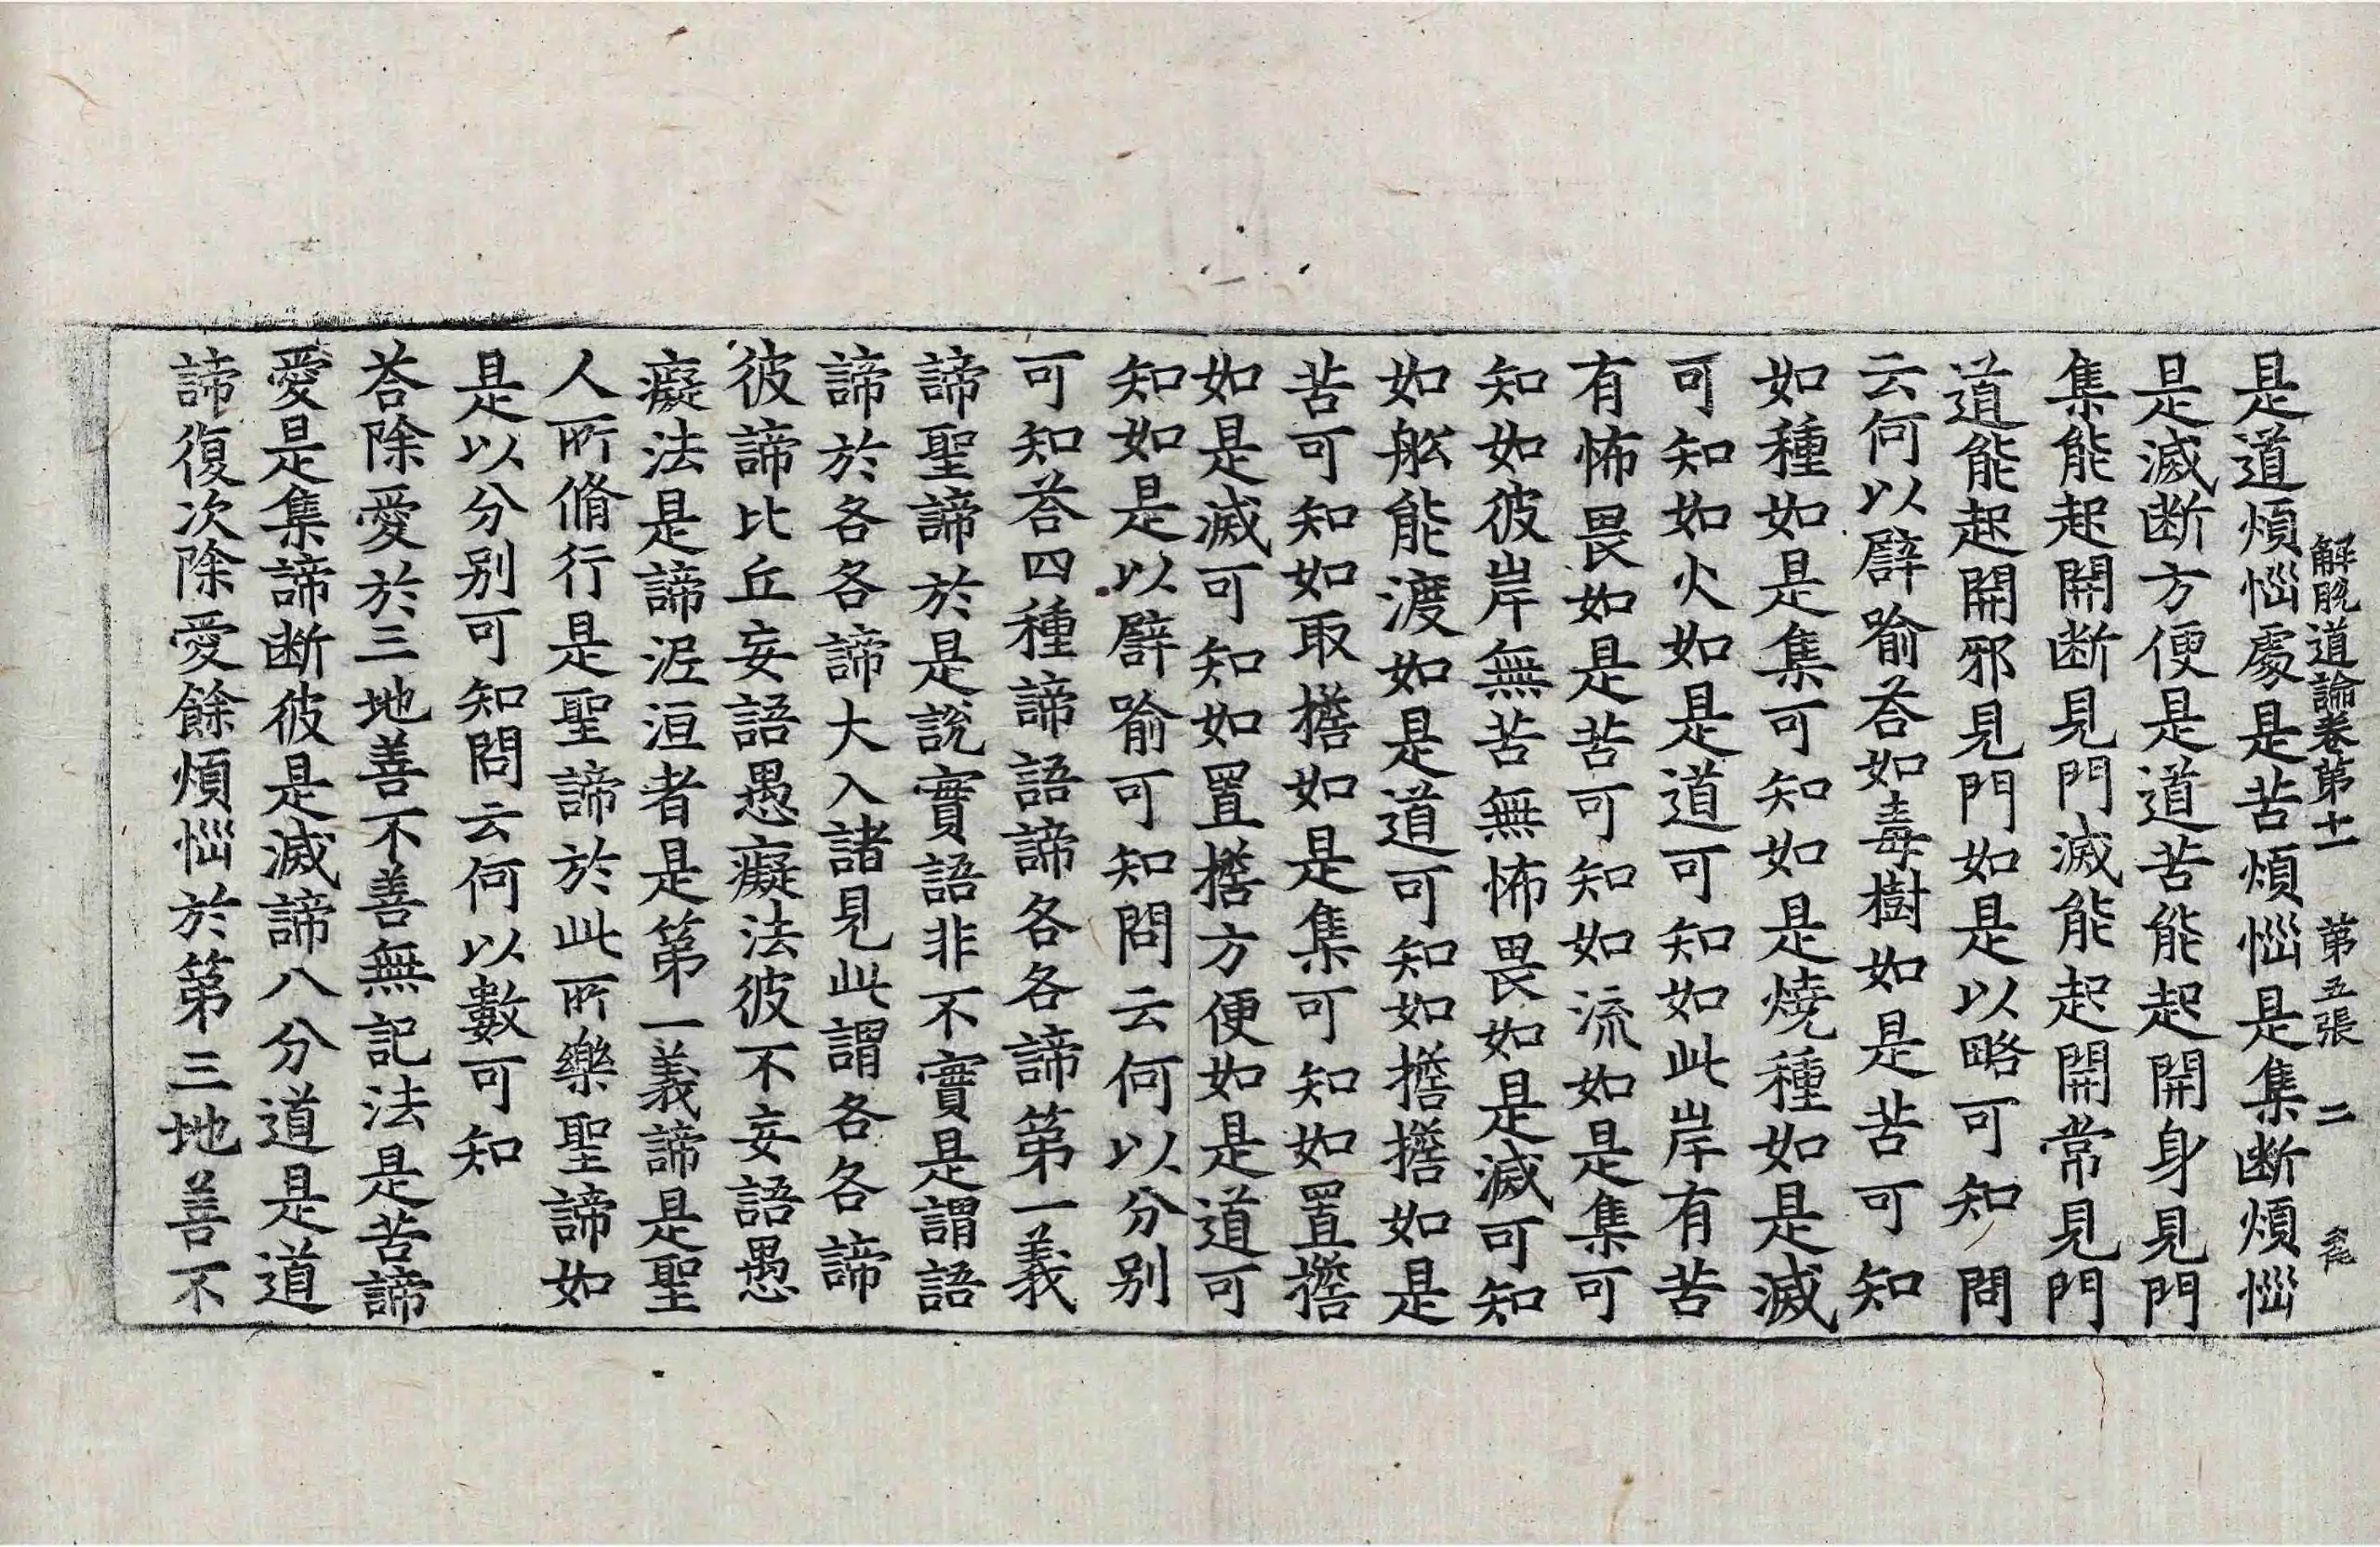 解脫道論卷第十一 第五張 二
是道煩惱處是苦煩惱是集断煩惱
是滅断方便是道苦能起開身見門
集能起開断見門滅能起開常見門
道能起開邪見門如是以略可知問
云何以譬喻荅如毒樹如是苦可知
如種如是集可知如是燒種如是滅
可知如火如是道可知如此岸有苦
有怖畏如是苦可知如流如是集可
知如彼岸無苦無怖畏如是滅可知
如舩能渡如是道可知如擔擔如是
苦可知如取擔如是集可知如置擔
如是滅可知如置擔方便如是道可
知如是以譬喻可知問云何以分别
可知荅四種諦語諦各各諦第一義
諦聖諦於是說實語非不實是謂語
諦於各各諦大入諸見此謂各各諦
彼諦比丘妄語愚癡法彼不妄語愚
癡法是諦泥洹者是第一義諦是聖
人所脩行是聖諦於此所樂聖諦如
是以分别可知問云何以數可知
荅除愛於三地善不善無記法是苦諦
愛是集諦断彼是滅諦八分道是道
諦復次除愛餘煩惱於第三地善不